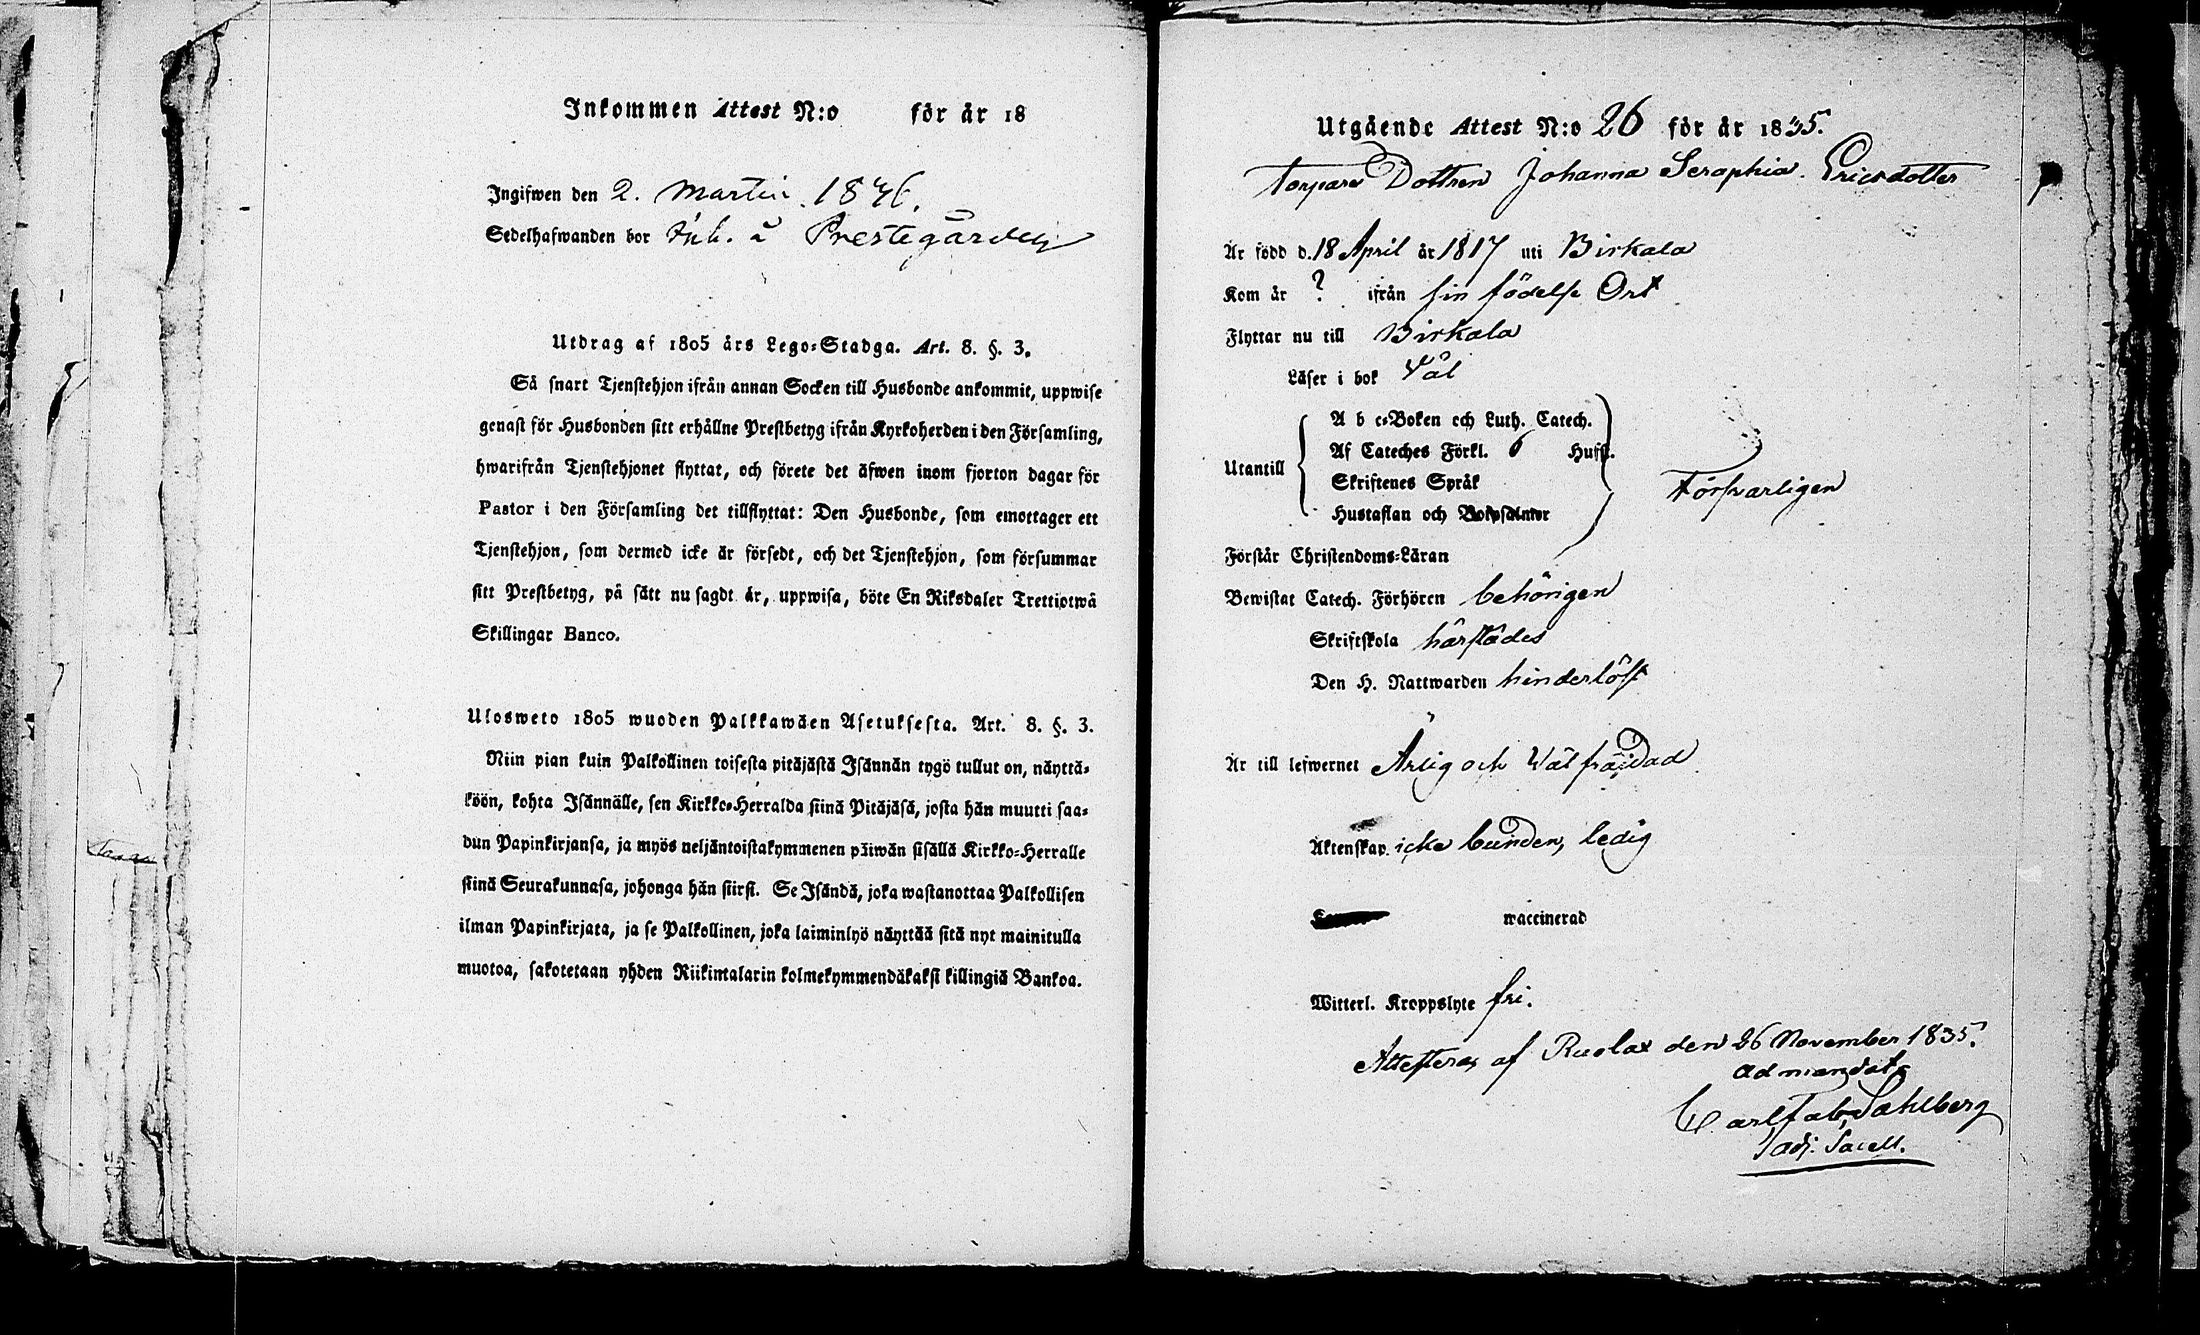 Inkommen Attest N:o för år 18
Ingifwen den 2. Martii. 1836.
Sedelhafwanden bor Inh. å Prestegården
Utdrag af 1805 års Lego-Stadga. Art. 8. §. 3.
Så snart Tjenstehjon ifrån annan Socken till Husbonde ankommit, uppwise
genast för Husbonden sitt erhållne Prestbetyg ifrån Kyrkoherden i den Församling,
hwarifrån Tjenstehjonet flyttat, och förete det äfwen inom fjorton dagar för
Pastor i den Församling det tillflyttat: Den Husbonde, som emottager ett
Tjenstehjon, som dermed icke är försedt, och det Tjenstehjon, som försummar
sitt Prestbetyg, på sätt nu sagdt är, uppwisa, böte En Riksdaler Trettiotwå
Skillingar Banco.
Ulosweto 1805 wuoden Palkkawäen Asetuksesta. Art. 8. §. 3.
Niin pian kuin Palkollinen toisesta pitäjästä Isännän tygö tullut on, näyttä-
köön, kohta Isännälle, sen Kirkko-Herralda siinä Pitäjäsä, josta hän muutti saa-
dun Papinkirjansa, ja myös neljäntoistakymmenen päiwän sisällä Kirkko-Herralle
siinä Seurakunnasa, johonga hän siirsi. Se Isändä, joka wastanottaa Palkollisen
ilman Papinkirjata, ja se Palkollinen, joka laiminlyö näyttää sitä nyt mainitulla
muotoa, sakotetaan yhden Riikintalarin kolmekymmendäkaksi killingiä Bankoa.
Utgående Attest N:o 26 för år 1835.
Torpare Dottren Johanna Seraphia Ericsdotter
Är född d. 18 April år 1817 uti Birkala
Kom år ? ifrån sin födelse Ort
Flyttar nu till Birkala
Läser i bok väl
A b c-Boken och Luth. Catech.
Af Cateches Förkl. 6 Hufst.
Utantill
Skriftenes Språk
Hustaflan och Botpsalmer
Försvarligen
Förstår Christendoms-Läran
Bewistat Catech. Förhören behörigen
Skriftskola härstädes
Den H. Nattwarden hinderlöst
Är till lefwernet Ärlig och Välfräjdad
Äktenskap. icke bunden, ledig
waccinerad
Witterl. Kroppslyte fri.
Attesteras af Ruolax den 26 November 1835.
ad mandat:
Carl Fab. Sahlberg
adj. Sacell.